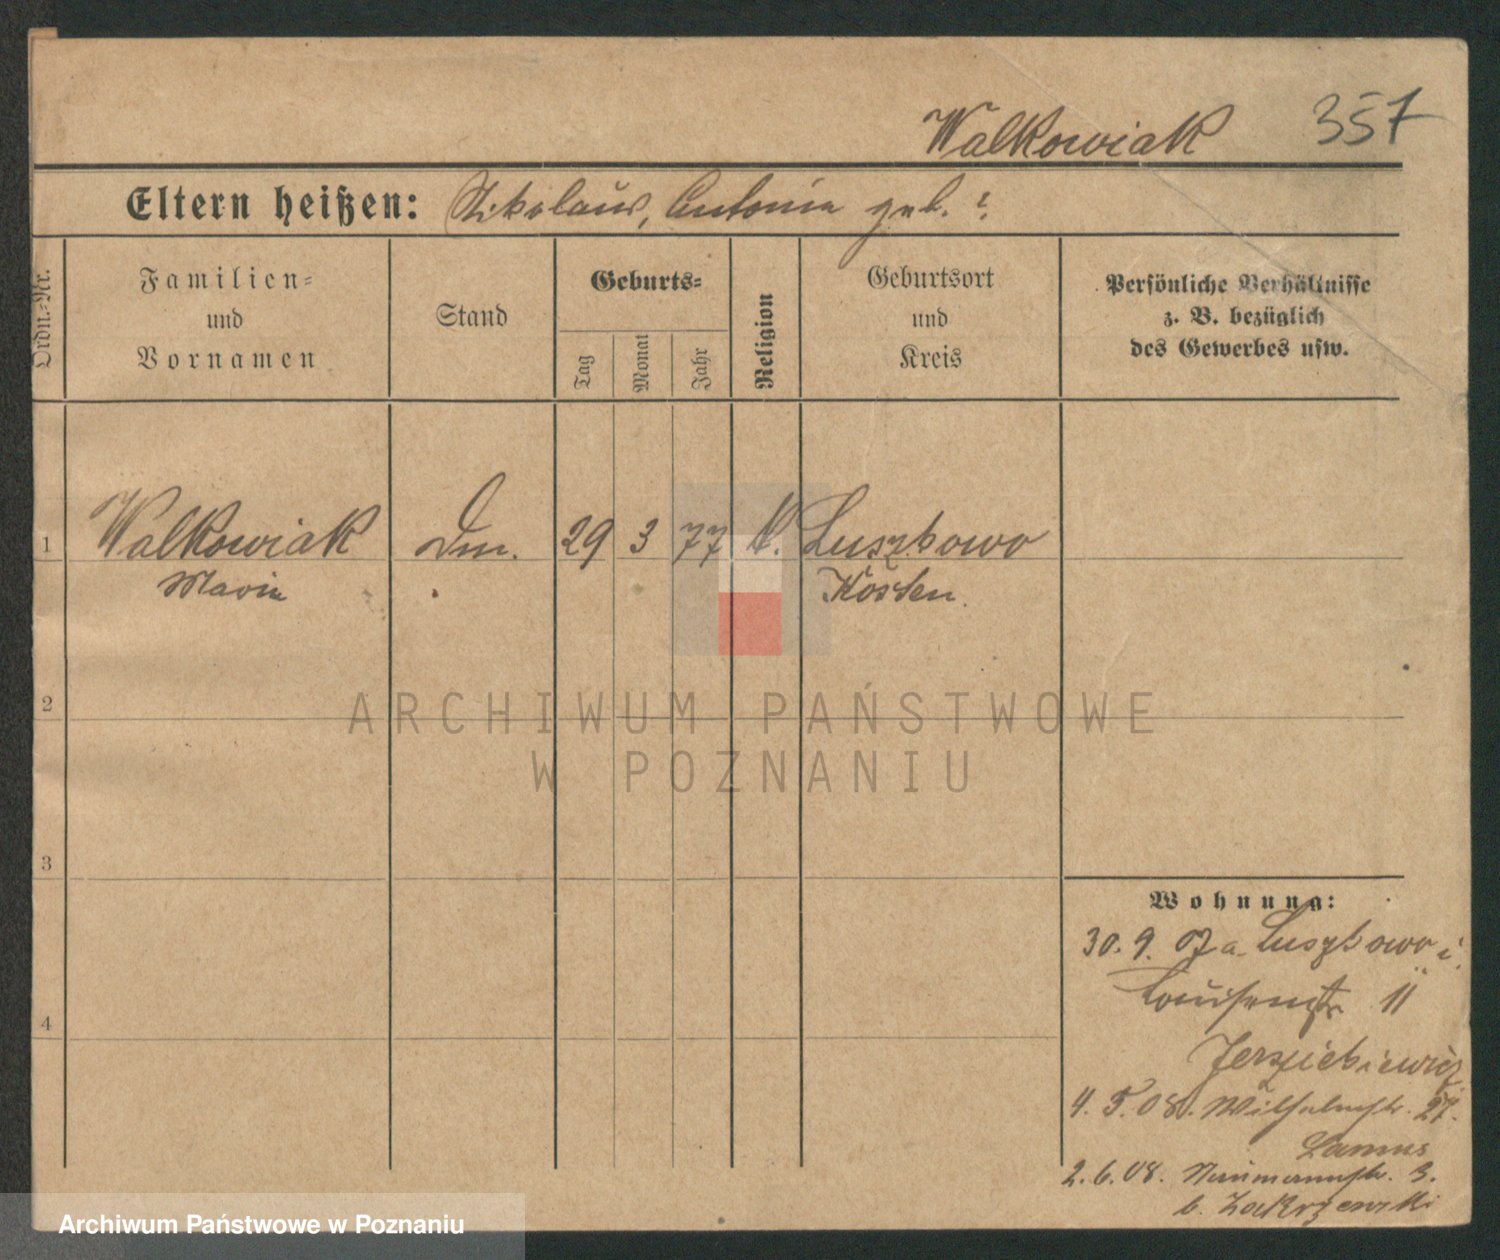 Walkowiak 357
Eltern heißen: Nikolaus, Antonie geb. ?
Ordn.-Nr.
Familien-
und
Vornamen
Stand
Geburts-
Tag
Monat
Jahr
Religion
Geburtsort
und
Kreis
Persönliche Verhältnisse
z. B. bezüglich
des Gewerbes usw.
1 Walkowiak 29 3 77 k. Luszkowo
Marie Kosten
2
ARCHIWUM PAŃSTWOWE
W POZNANIU
3
Wohnung:
30. 9. 07 a. Luszkowo i.
Louisenstr. 11
4
4. 5. 08. Wilhelmstr. 27.
2. 6. 08. Naumannstr. 3.
b. Zakrzewski
Archiwum Państwowe w Poznaniu